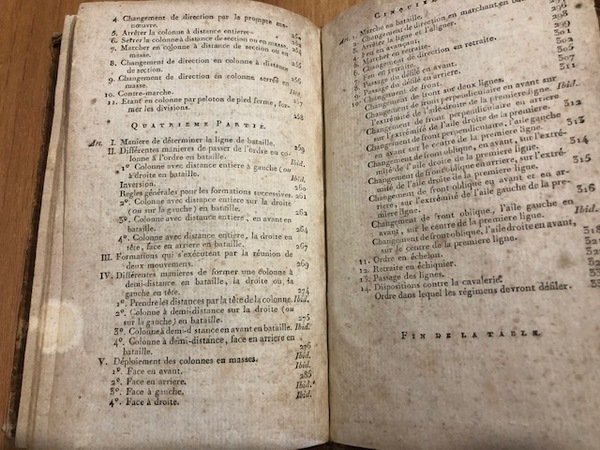 4. Changement de direction par la prompte ma-
nœuvre.
5. Arrêter la colonne à distance entiere
6. Serrer la colonne à distance de section ou en masse.
7. Marcher en colonne à distance de section ou en
masse.
8. Changement de direction en colonne à distance
de section.
9. Changement de direction en colonne serrée en
masse. Ibid.
10. Contre-marche.
11. Etant en colonne par peloton de pied ferme, for-
mer les divisions. 268
QUATRIEME PARTIE.
Art. I. Maniere de déterminer la ligne de bataille. 269
II. Différentes manieres de passer de l'ordre en co-
lonne à l'ordre en bataille. Ibid.
1º Colonne avec distance entiere à gauche (ou
à droite) en bataille. Ibid.
Inversion.
Regles générales pour les formations successives. 261
2º. Colonne avec distance entiere sur la droite
(ou sur la gauche) en bataille. 262
3º. Colonne avec distance entiere, en avant en
bataille. 264
4º. Colonne avec distance entiere, la droite en
tête, face en arriere en bataille. 267
III. Formations qui s'exécutent par la réunion de
deux mouvemens. 269
IV. Différentes manieres de former une colonne à
demi-distance en bataille, la droite ou la
gauche en tête. 274
1º. Prendre les distances par la tête de la colonne. Ibid.
2º. Colonne à demi-distance sur la droite (ou
sur la gauche) en bataille. 275
3º. Colonne à demi-d stance en avant en bataille. Ibid.
4º. Colonne à demi-distance, face en arriere en
bataille. 276
V. Déploiement des colonnes en masses. Ibid.
1º. Face en avant. Ibid.
2º. Face en arriere. 286
3º. Face à gauche. Ibid.
4º. Face à droite. Ibid.
CINQUIE
Art. 1. Marche en bataille.
2. Changement de direction en marchant en bat
3. Arrêter la ligne et l'aligner.
4. Feu en avançant.
5. Marcher en retraite.
6. Feu en retraite.
7. Changement de direction en retraite. 301
8. Passage du défilé en avant.
9. Passage du défilé en arriere.
10. Changement de front.
Changement de front sur deux lignes. 307
Changement de front perpendiculaire en avant sur
l'extrêmité de l'aile droite de la premiere ligne. Ibid.
Changement de front perpendiculaire en arriere
sur l'extrêmité de l'aile droite de la premiere ligne. 311
Changement de front perpendiculaire, l'aile gauche
en avant sur le centre de la premiere ligne. 312
Changement de front oblique en avant, sur l'extrê-
mité de l'aile droite de la premiere ligne. 313
Changement de front oblique en arriere, sur l'extré-
mité de l'aile droite de la premiere ligne. 314
Changement de front oblique en avant et en ar-
riere, sur l'extrêmité de l'aile gauche de la pre-
miere ligne. 315
Changement de front oblique, l'aile gauche en
avant, sur le centre de la premiere ligne. 316
Changement de front oblique, l'aile droite en avant,
sur le centre de la premiere ligne. Ibid.
11. Ordre en échelon.
12. Retraite en échiquier.
13. Passage des lignes.
14. Dispositions contre la cavalerie.
Ordre dans lequel les régimens devront défiler.
FIN DE LA TABLE.